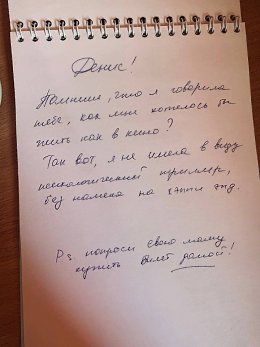 Денис!
Помнишь, что я говорила
тебе, как мне хотелось бы
жить как в кино?
Так вот, я не имела в виду
психологический триллер,
без намека на хэппи энд.
P.s попроси свою маму
купить билет домой!